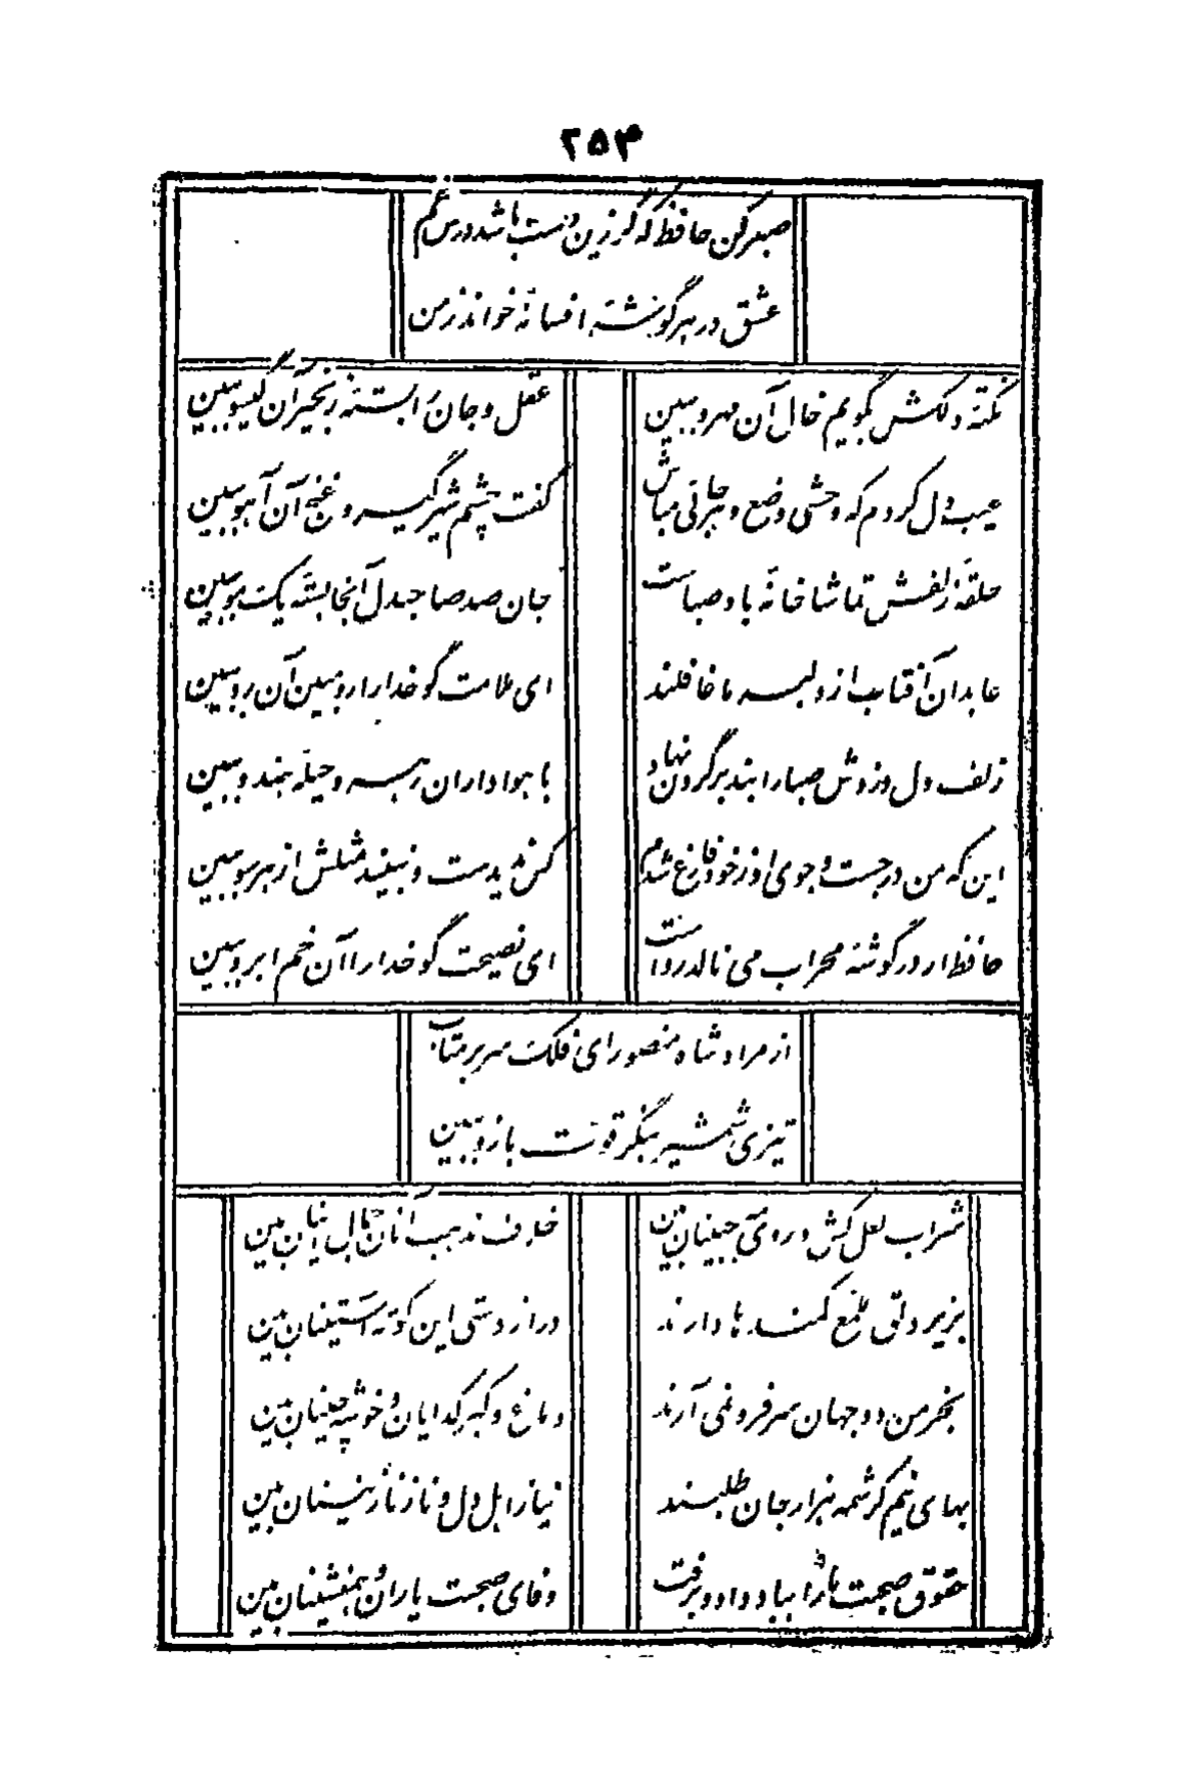 ۲۵۳
صبر کن حافظ که گر زین دست باشد درس غم
عشق در هر گوشۀ افسانۀ خواند ز من
نکتۀ دلکش بگویم خال آن مهرو ببین
عقل و جان را بستۀ زنجیر آن گیسو ببین
عیب دل کردم که وحشی وضع و هر جائی مباش
گفت چشم شیرگیر و غنج آن آهو ببین
حلقۀ زلفش تماشا خانۀ باد صباست
جان صد صاحبدل آنجا بستۀ یک مو ببین
عابدان آفتاب از دلبر ما غافلند
ای ملامت گو خدا را رو مبین آن رو ببین
زلف دل دزدش صبا را بند بر گردن نهاد
با هواداران رهرو حیلۀ هندو ببین
این که من در جست و جوی او ز خود فارغ شدم
کس ندیدست و نبیند مثلش از هر سو ببین
حافظ ار در گوشۀ محراب می نالد رواست
ای نصیحت گو خدا را آن خم ابرو ببین
از مراد شاه منصور ای فلک سر بر متاب
تیزی شمشیر بنگر قوت بازو ببین
شراب لعل کش و روی مه جبینان بین
خلاف مذهب آنان جمال اینان بین
بزیر دلق ملمع کمندها دارند
دراز دستی این کوته آستینان بین
بخرمن دو جهان سر فرو نمی آرند
دماغ و کبر گدایان و خوشه چینان بین
بهای نیم کرشمه هزار جان طلبند
نیاز اهل دل و ناز نازنینان بین
حقوق صحبت ما را بباد داد و برفت
وفای صحبت یاران و همنشینان بین